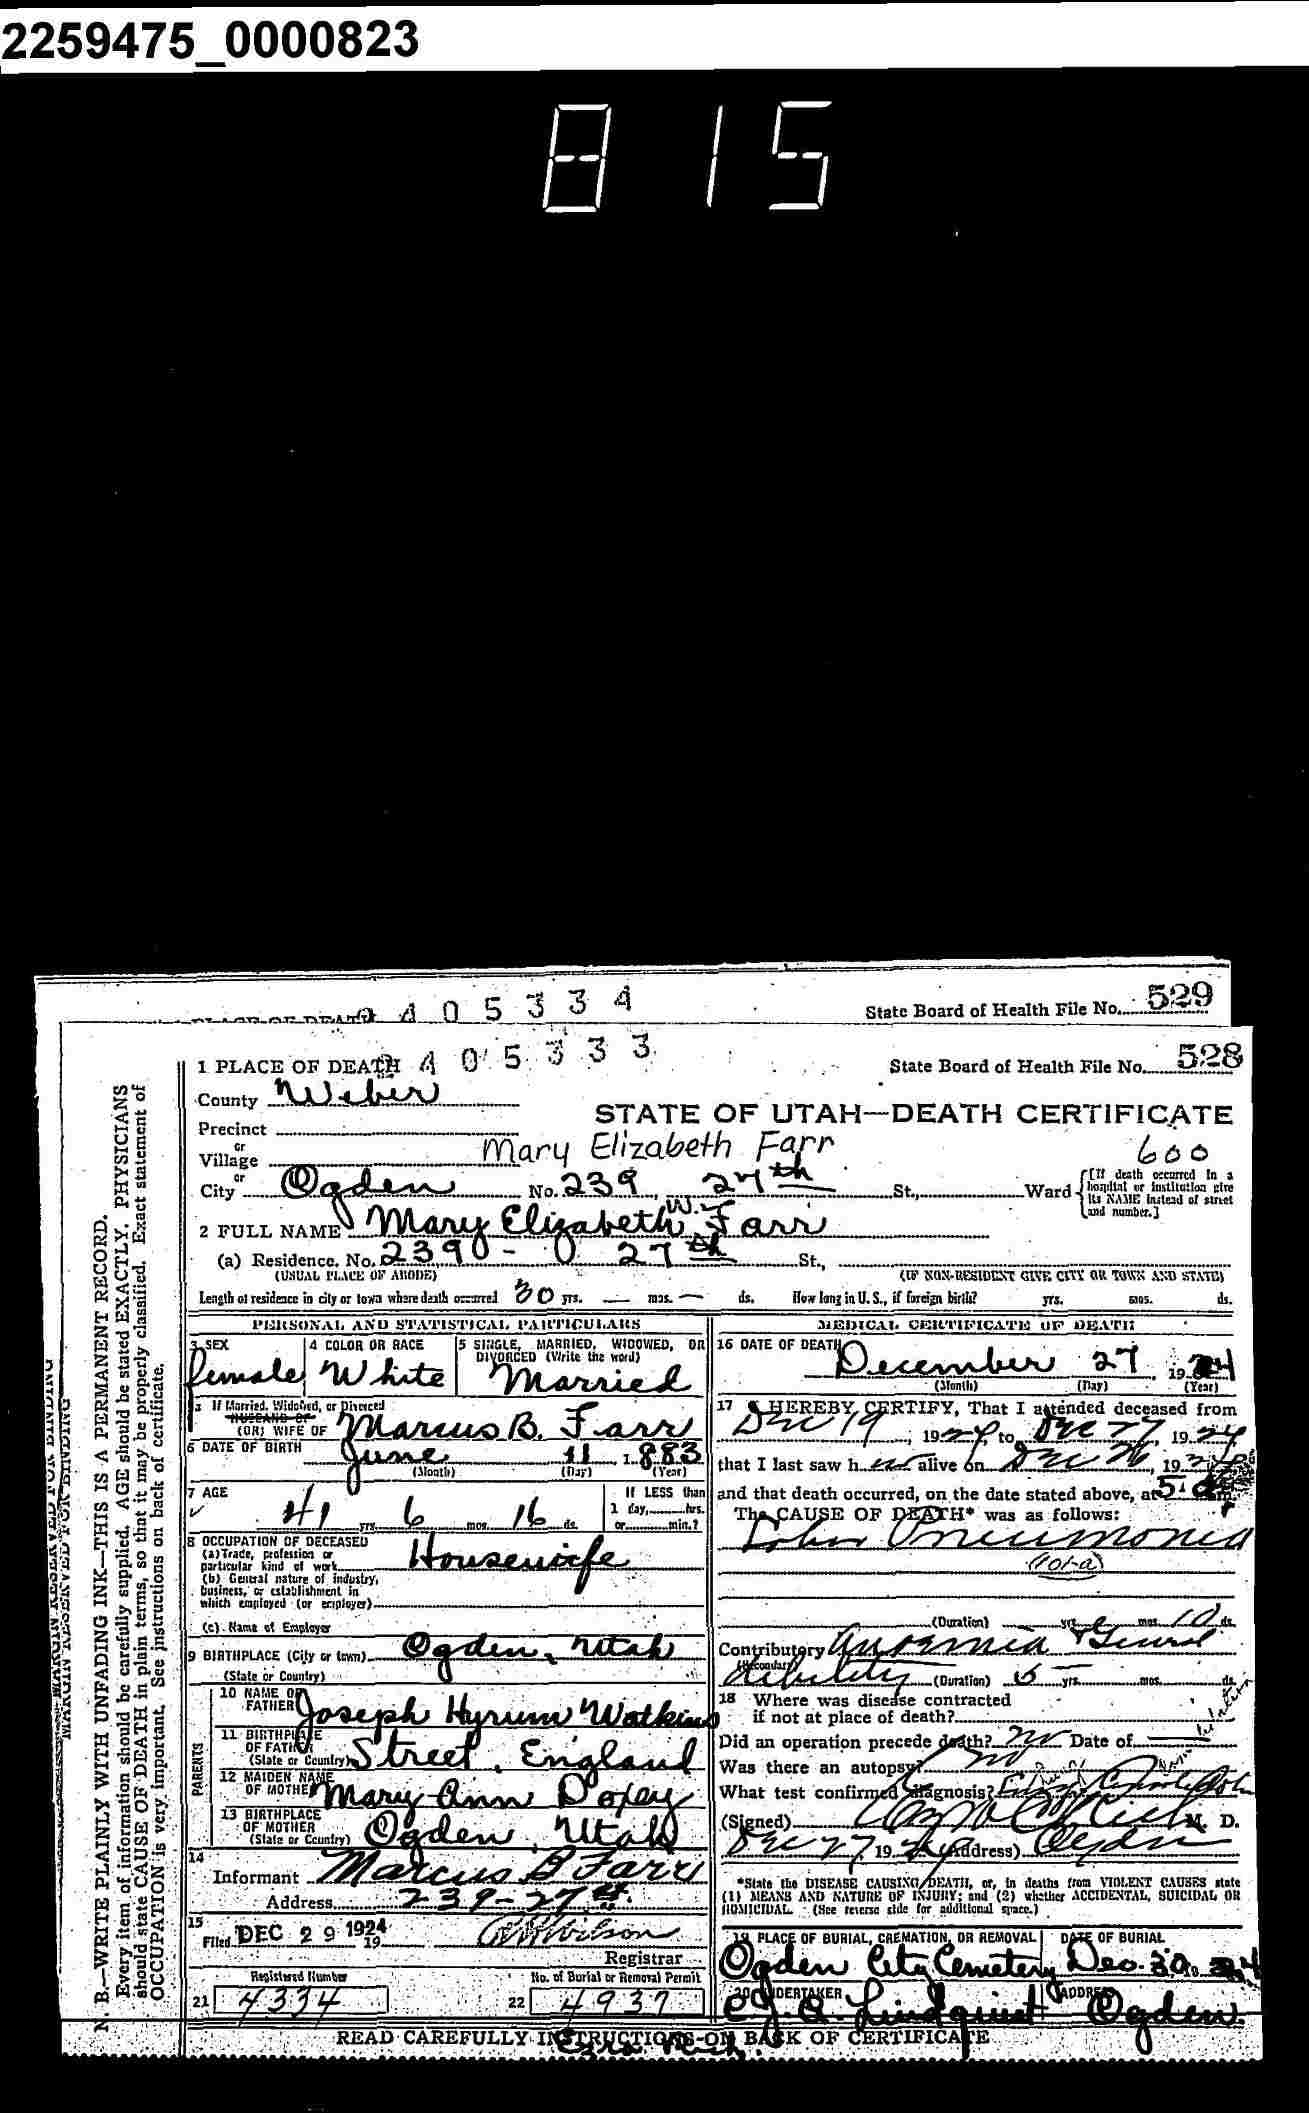 2259475_0000823
815
405334
State Board of Health File No. 529
1 PLACE OF DEATH 405333
State Board of Health File No. 528
County Weber
STATE OF UTAH—DEATH CERTIFICATE
Precinct
or Village
Mary Elizabeth Farr
600
or City Ogden No. 239 W. 27th St., Ward
[If death occurred in a hospital or institution give its NAME instead of street and number.]
2 FULL NAME Mary Elizabeth Farr
(a) Residence. No. 239 27th St.,
(USUAL PLACE OF ABODE)
(IF NON-RESIDENT GIVE CITY OR TOWN AND STATE)
Length of residence in city or town where death occurred 30 yrs. — mos. — ds. How long in U. S., if foreign birth? yrs. mos. ds.
PERSONAL AND STATISTICAL PARTICULARS
3 SEX
female
4 COLOR OR RACE
White
5 SINGLE, MARRIED, WIDOWED, OR DIVORCED (Write the word)
Married
If Married, Widowed, or Divorced
HUSBAND OF
(OR) WIFE OF Marcus B. Farr
6 DATE OF BIRTH June 11 1883
(Month) (Day) (Year)
7 AGE
41 yrs. 6 mos. 16 ds.
If LESS than 1 day, hrs. or min.?
8 OCCUPATION OF DECEASED
(a) Trade, profession or particular kind of work Housewife
(b) General nature of industry, business, or establishment in which employed (or employer)
(c) Name of Employer
9 BIRTHPLACE (City or town) Ogden, Utah
(State or Country)
PARENTS
10 NAME OF FATHER Joseph Hyrum Watkins
11 BIRTHPLACE OF FATHER (State or Country) Street, England
12 MAIDEN NAME OF MOTHER Mary Ann Doxey
13 BIRTHPLACE OF MOTHER (State or Country) Ogden, Utah
14
Informant Marcus B Farr
Address 239-27th
15
Filed DEC 29 1924
Wilson
Registrar
Registered Number
21 4334
No. of Burial or Removal Permit
22 4937
MEDICAL CERTIFICATE OF DEATH
16 DATE OF DEATH December 27, 1924
(Month) (Day) (Year)
17 I HEREBY CERTIFY, That I attended deceased from
Dec 19, 1924, to Dec 27, 1924
that I last saw her alive on Dec 26, 1924
and that death occurred, on the date stated above, at 5
The CAUSE OF DEATH* was as follows:
Lobar Pneumonia
(101-a)
(Duration) yrs. mos. 10 ds.
Contributory Anaemia & General
(Secondary) debility (Duration) yrs. mos. ds.
18 Where was disease contracted
if not at place of death?
Did an operation precede death? no Date of
Was there an autopsy? no
What test confirmed diagnosis?
(Signed) M. D.
Dec 27 1924 (Address) Ogden
*State the DISEASE CAUSING DEATH, or, in deaths from VIOLENT CAUSES state
(1) MEANS AND NATURE OF INJURY; and (2) whether ACCIDENTAL, SUICIDAL OR
HOMICIDAL. (See reverse side for additional space.)
19 PLACE OF BURIAL, CREMATION, OR REMOVAL
Ogden City Cemetery
DATE OF BURIAL
Dec. 30, 24
20 UNDERTAKER
Lindquist
ADDRESS
Ogden.
READ CAREFULLY INSTRUCTIONS ON BACK OF CERTIFICATE
MARGIN RESERVED FOR BINDING
MARGIN RESERVED FOR BINDING
N. B.—WRITE PLAINLY WITH UNFADING INK—THIS IS A PERMANENT RECORD.
Every item of information should be carefully supplied. AGE should be stated EXACTLY. PHYSICIANS
should state CAUSE OF DEATH in plain terms, so that it may be properly classified. Exact statement of
OCCUPATION is very important. See instructions on back of certificate.